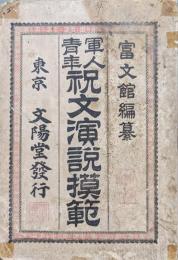 富文館編纂
軍人
青年
祝文演説摸範
東京 文陽堂發行